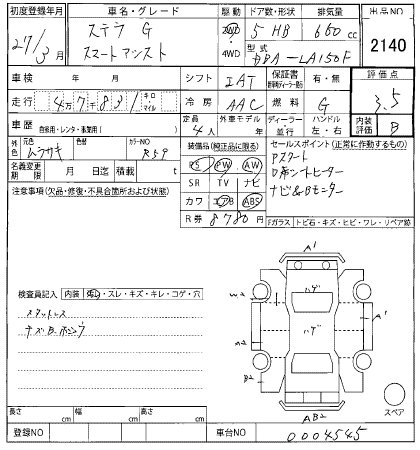 初度登録年月 車名・グレード 駆動 ドア数・形状 排気量 出品NO
27年 3月 ステラ G スマートアシスト 2WD 4WD 5 HB 660cc 2140
型式 DBA-LA150F
車検 年 月 シフト IAT 保証書 有・無 評価点 3.5
走行 47831 キロ マイル 冷房 AAC 燃料 G
車歴 自家用・レンタ・事業用( ) 定員 4人 外車モデル 年 ディーラー 並行 ハンドル 左・右 内装評価 B
外色 元色 ムラサキ 色替 カラーNO R59
装備品(純正品に限る) セールスポイント(正常に作動するもの)
名義変更期限 月 日迄 積載 t
PS PW AW
SR TV ナビ
カワ エアB ABS
R券 8780円
Pスタート
D席シートヒーター
ナビ&Bモニター
注意事項(欠品・修復・不具合箇所および状態)
Fガラス トビ石・キズ・ヒビ・ワレ・リペア跡
検査員記入 内装 ・スレ・キズ・キレ・コゲ・穴
A1
ハゲ
A1
ハゲ
A2
B2
AB2
スペア
長さ cm 幅 cm 高さ cm
登録NO 車台NO 0004545